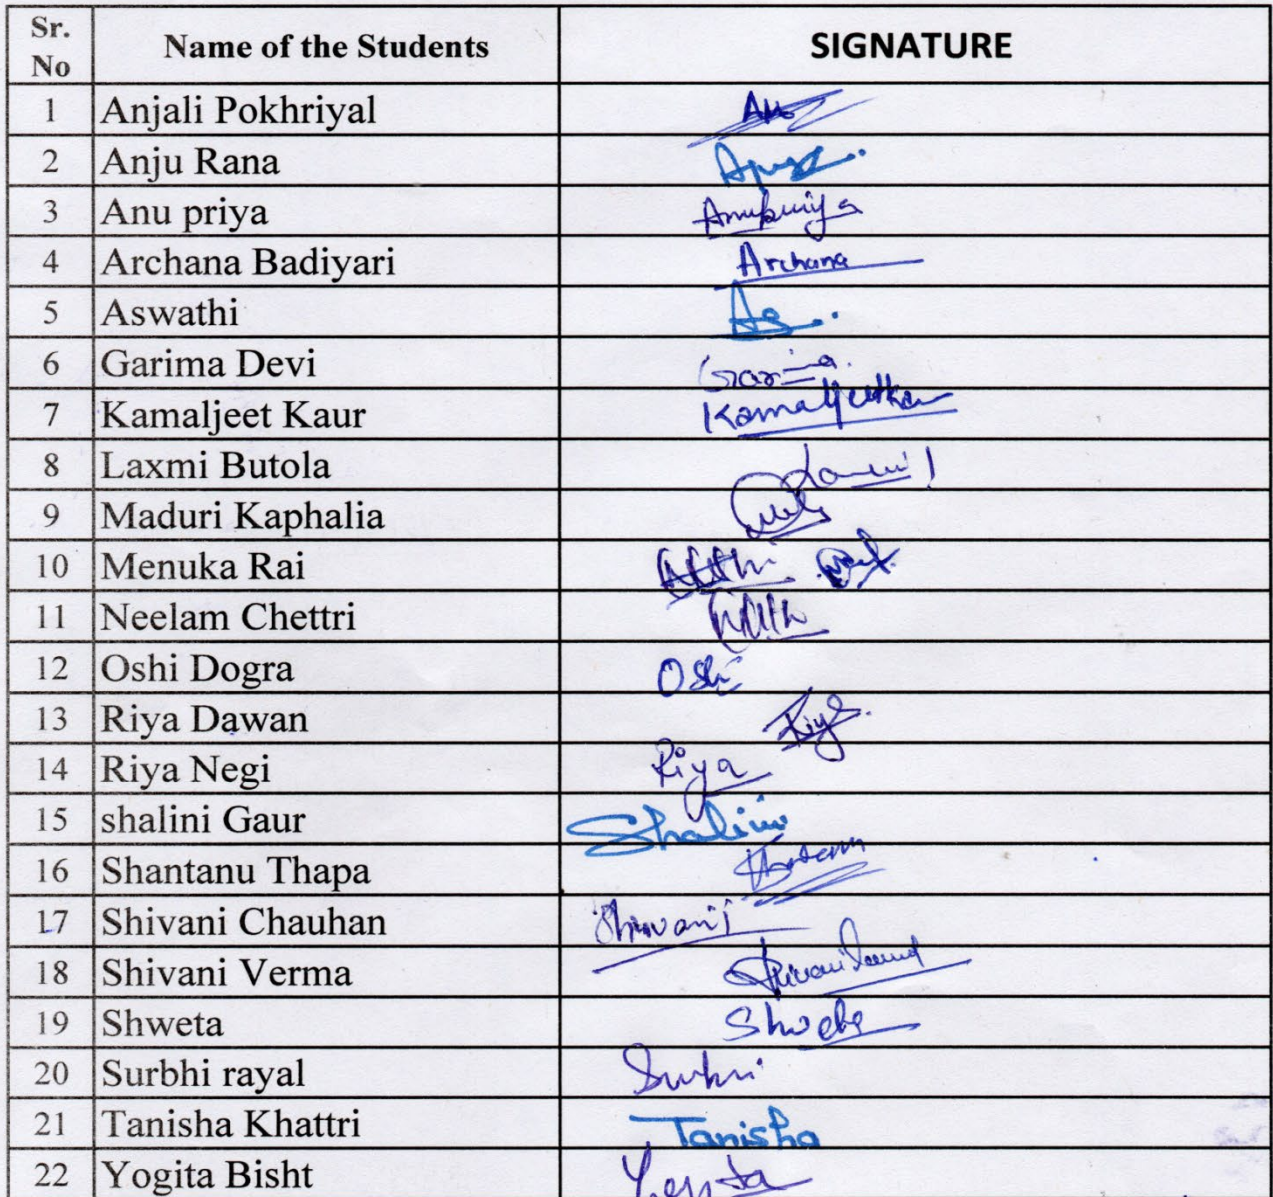 Sr. No Name of the Students SIGNATURE
1 Anjali Pokhriyal
2 Anju Rana
3 Anu priya Anupriya
4 Archana Badiyari Archana
5 Aswathi
6 Garima Devi
7 Kamaljeet Kaur Kamaljeetkaur
8 Laxmi Butola
9 Maduri Kaphalia
10 Menuka Rai
11 Neelam Chettri
12 Oshi Dogra Oshi
13 Riya Dawan Riya
14 Riya Negi Riya
15 shalini Gaur Shalini
16 Shantanu Thapa
17 Shivani Chauhan Shivani
18 Shivani Verma
19 Shweta Shweta
20 Surbhi rayal
21 Tanisha Khattri Tanisha
22 Yogita Bisht Yogita